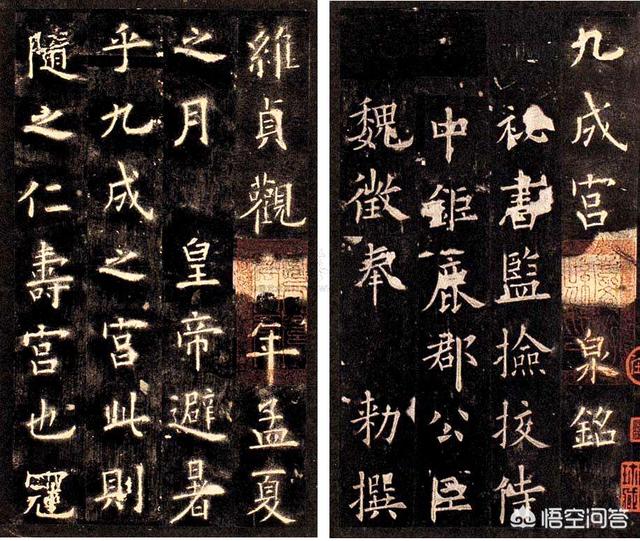 九成宮 泉銘
祕書監撿挍侍
中鉅鹿郡公臣
魏徵奉 勅撰
維貞觀 年孟夏
之月 皇帝避暑
乎九成之宮此則
隨之仁壽宮也冠
悟空问答